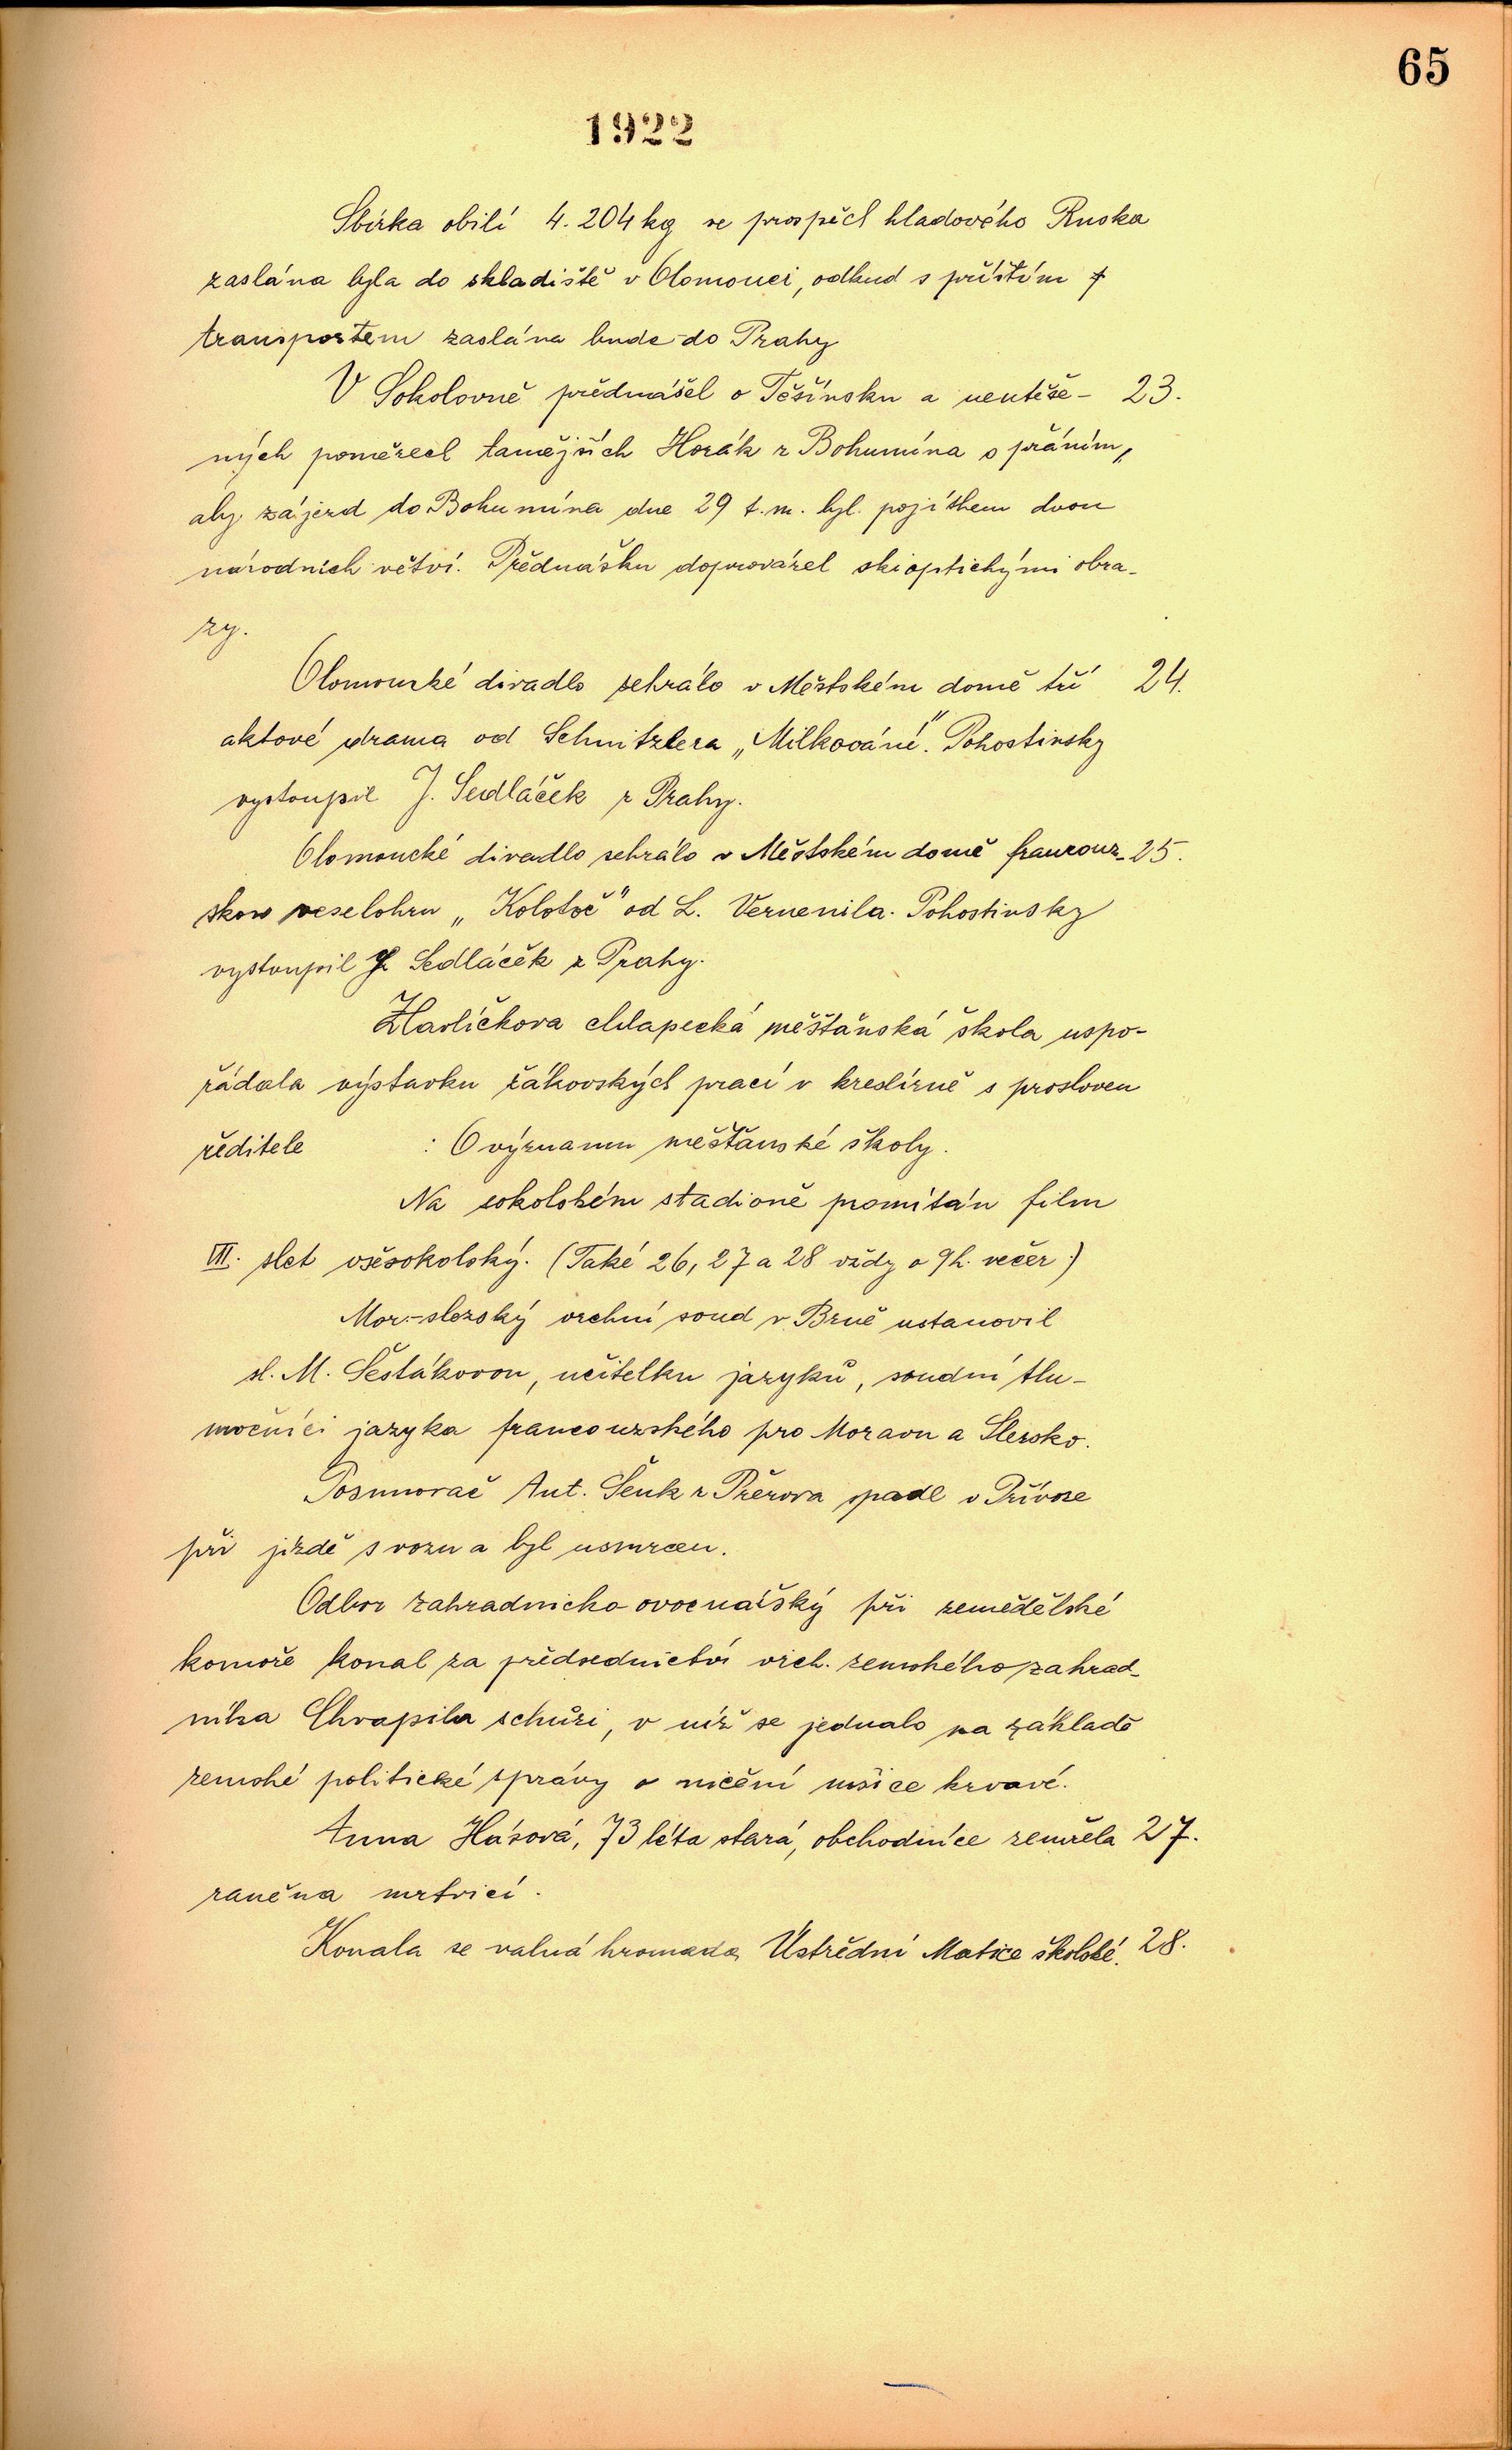 65
1922
Sbírka obilí 4.204 kg ve prospěch hladového Ruska
zaslána byla do skladiště v Olomouci, odkud s příštím
transportem zaslána bude do Prahy
V Sokolovně přednášel o Těšínsku a neutěše- 23.
ných poměrech tamějších Horák z Bohumína s přáním,
aby zájezd do Bohumína dne 29 t.m. byl pojítkem dvou
národních větví. Přednášku doprovázel skioptickými obra-
zy.
Olomoucké divadlo sehrálo v Městském domě tří 24.
aktové drama od Schnitzlera „Milkování". Pohostinsky
vystoupil J. Sedláček z Prahy.
Olomoucké divadlo sehrálo v Městském domě francouz- 25.
skou veselohru „Kolotoč" od L. Verneuila. Pohostinsky
vystoupil J. Sedláček z Prahy.
Havlíčkova chlapecká měšťanská škola uspo-
řádala výstavku žákovských prací v kreslírně s prosloven
ředitele : O významu měšťanské školy.
Na sokolském stadioně promítán film
VII. slet všesokolský. (Také 26, 27 a 28 vždy o 9h. večer.)
Mor.-slezský vrchní soud v Brně ustanovil
sl. M. Šestákovou, učitelku jazyků, soudní tlu-
močnicí jazyka francouzského pro Moravu a Slezsko.
Posunovač Ant. Šenk z Přerova spadl v Přívoze
při jízdě s vozu a byl usmrcen.
Odbor zahradnicko-ovocnářský při zemědělské
komoře konal za předsednictví vrch. zemského zahrad-
níka Chrapila schůzi, v níž se jednalo na základě
zemské politické správy o ničení mšice krvavé.
Anna Hásová, 73 léta stará, obchodnice zemřela 27.
raněna mrtvicí.
Konala se valná hromada Ústřední Matice školské. 28.